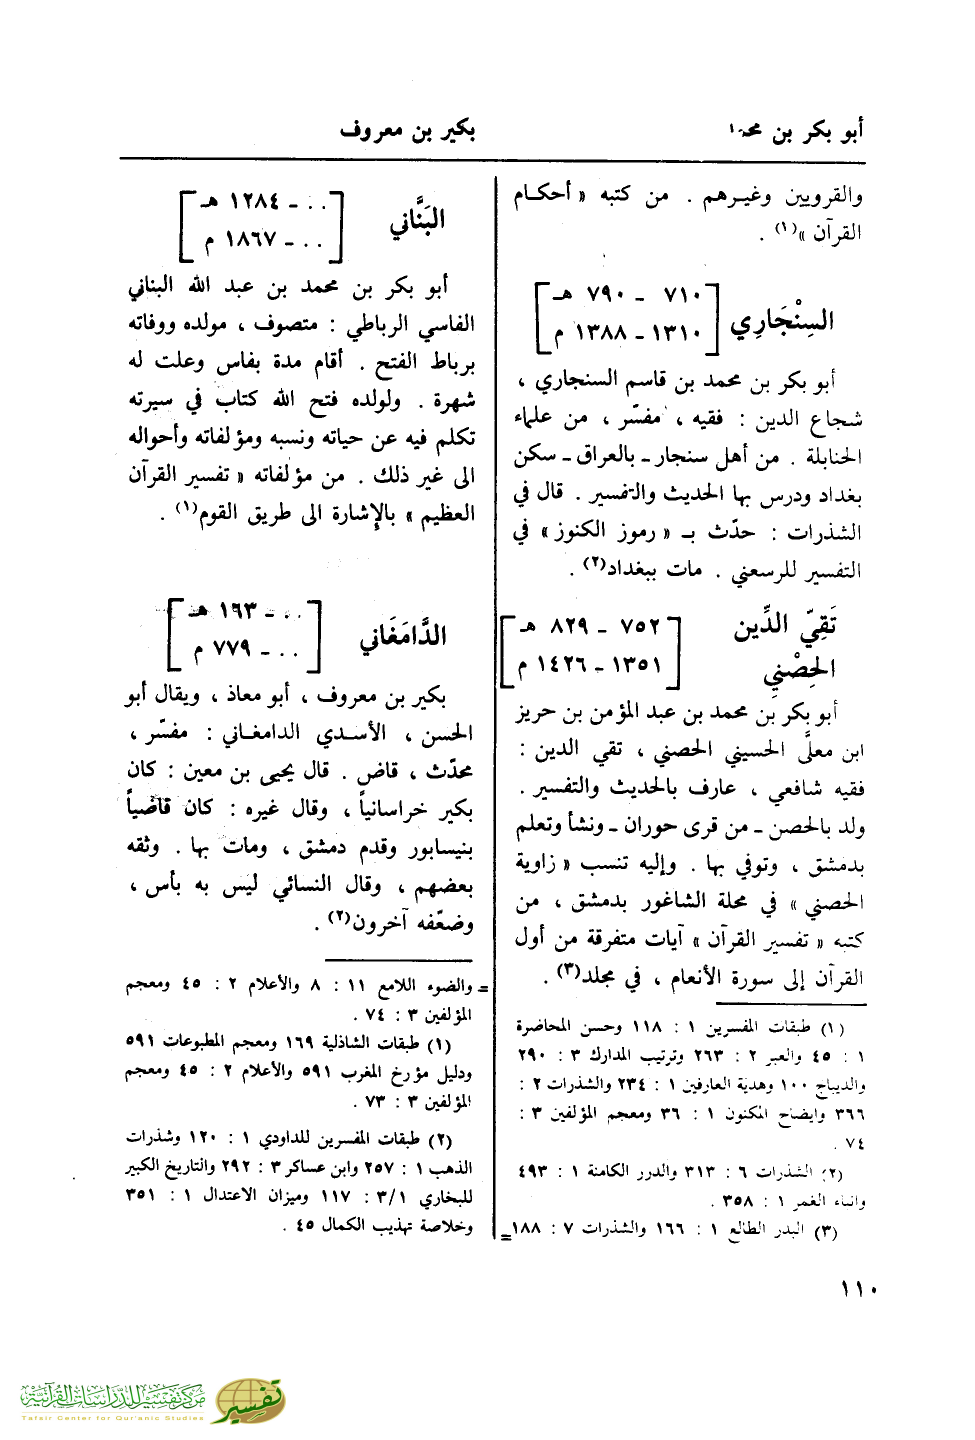 أبو بكر بن محمد
بكير بن معروف
والقرويين وغيرهم . من كتبه « أحكام
القرآن »(١) .
السِنْجَارِي
٧١٠ - ٧٩٠ هـ
١٣١٠ - ١٣٨٨ م
أبو بكر بن محمد بن قاسم السنجاري ،
شجاع الدين : فقيه ، مفسّر ، من علماء
الحنابلة . من أهل سنجار ـ بالعراق ـ سكن
بغداد ودرس بها الحديث والتفسير . قال في
الشذرات : حدّث بـ « رموز الكنوز » في
التفسير للرسعني . مات ببغداد(٢) .
تَقِيّ الدِّين
الحِصْنِي
٧٥٢ - ٨٢٩ هـ
١٣٥١ - ١٤٢٦ م
أبو بكر بن محمد بن عبد المؤمن بن حريز
ابن معلَّى الحسيني الحصني ، تقي الدين :
فقيه شافعي ، عارف بالحديث والتفسير .
ولد بالحصن ـ من قرى حوران ـ ونشأ وتعلم
بدمشق ، وتوفي بها . وإليه تنسب « زاوية
الحصني » في محلة الشاغور بدمشق ، من
كتبه « تفسير القرآن » آيات متفرقة من أول
القرآن إلى سورة الأنعام ، في مجلد(٣) .
(١) طبقات المفسرين ١ : ١١٨ وحسن المحاضرة
١ : ٤٥ والعبر ٢ : ٢٦٣ وترتيب المدارك ٣ : ٢٩٠
والديباج ١٠٠ وهدية العارفين ١ : ٢٣٤ والشذرات ٢ :
٣٦٦ وايضاح المكنون ١ : ٣٦ ومعجم المؤلفين ٣ :
٧٤ .
(٢) الشذرات ٦ : ٣١٣ والدرر الكامنة ١ : ٤٩٣
وانباء الغمر ١ : ٣٥٨ .
(٣) البدر الطالع ١ : ١٦٦ والشذرات ٧ : ١٨٨ =
البَنَّاني
.. - ١٢٨٤ هـ
.. - ١٨٦٧ م
أبو بكر بن محمد بن عبد الله البناني
الفاسي الرباطي : متصوف ، مولده ووفاته
برباط الفتح . أقام مدة بفاس وعلت له
شهرة . ولولده فتح الله كتاب في سيرته
تكلم فيه عن حياته ونسبه ومؤلفاته وأحواله
الى غير ذلك . من مؤلفاته « تفسير القرآن
العظيم » بالإشارة الى طريق القوم(١) .
الدَّامَغَاني
.. - ١٦٣ هـ
.. - ٧٧٩ م
بكير بن معروف ، أبو معاذ ، ويقال أبو
الحسن ، الأسدي الدامغاني : مفسّر ،
محدّث ، قاض . قال يحيى بن معين : كان
بكير خراسانياً ، وقال غيره : كان قاضياً
بنيسابور وقدم دمشق ، ومات بها . وثقه
بعضهم ، وقال النسائي ليس به بأس ،
وضعّفه آخرون(٢) .
= والضوء اللامع ١١ : ٨ والأعلام ٢ : ٤٥ ومعجم
المؤلفين ٣ : ٧٤ .
(١) طبقات الشاذلية ١٦٩ ومعجم المطبوعات ٥٩١
ودليل مؤرخ المغرب ٥٩١ والأعلام ٢ : ٤٥ ومعجم
المؤلفين ٣ : ٧٣ .
(٢) طبقات المفسرين للداودي ١ : ١٢٠ وشذرات
الذهب ١ : ٢٥٧ وابن عساكر ٣ : ٢٩٢ والتاريخ الكبير
للبخاري ٣/١ : ١١٧ وميزان الاعتدال ١ : ٣٥١
وخلاصة تهذيب الكمال ٤٥ .
١١٠
مركز تفسير للدراسات القرآنية
Tafsir Center for Qur'anic Studies
تفسير